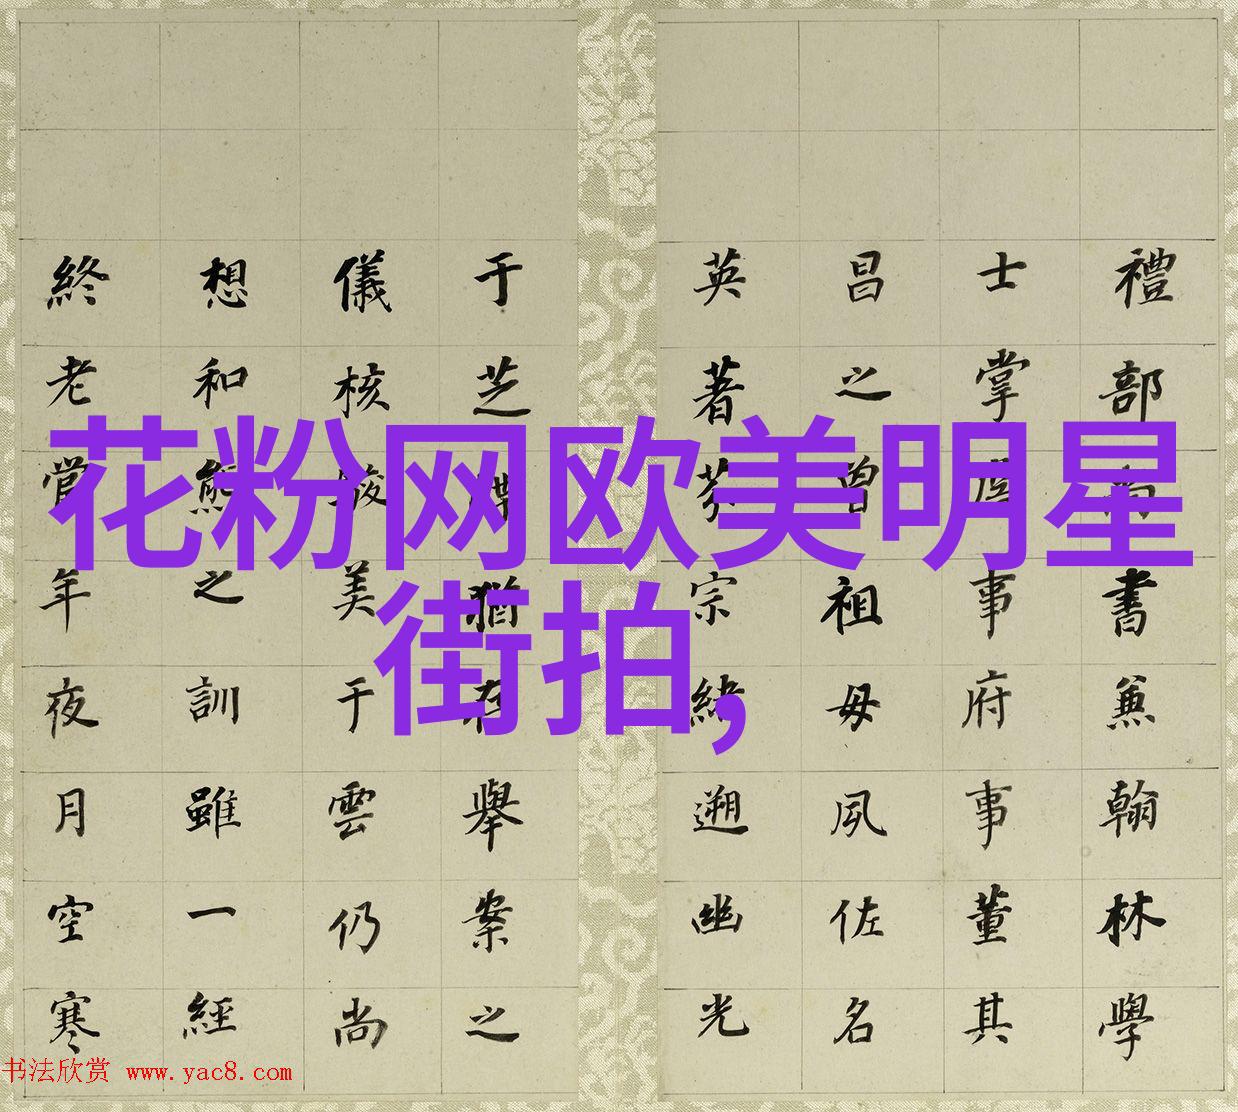 禮部尚書兼翰林學
士掌詹事府事董其
昌之曾祖母夙佐名
英著芬宗緒遡幽光
于芝猶舉案之
儀核駿美于雲仍尚
想和熊之訓雖一經
終老當年夜月空寒
花粉网欧美明星
街拍,
书法欣赏 www.yac8.com